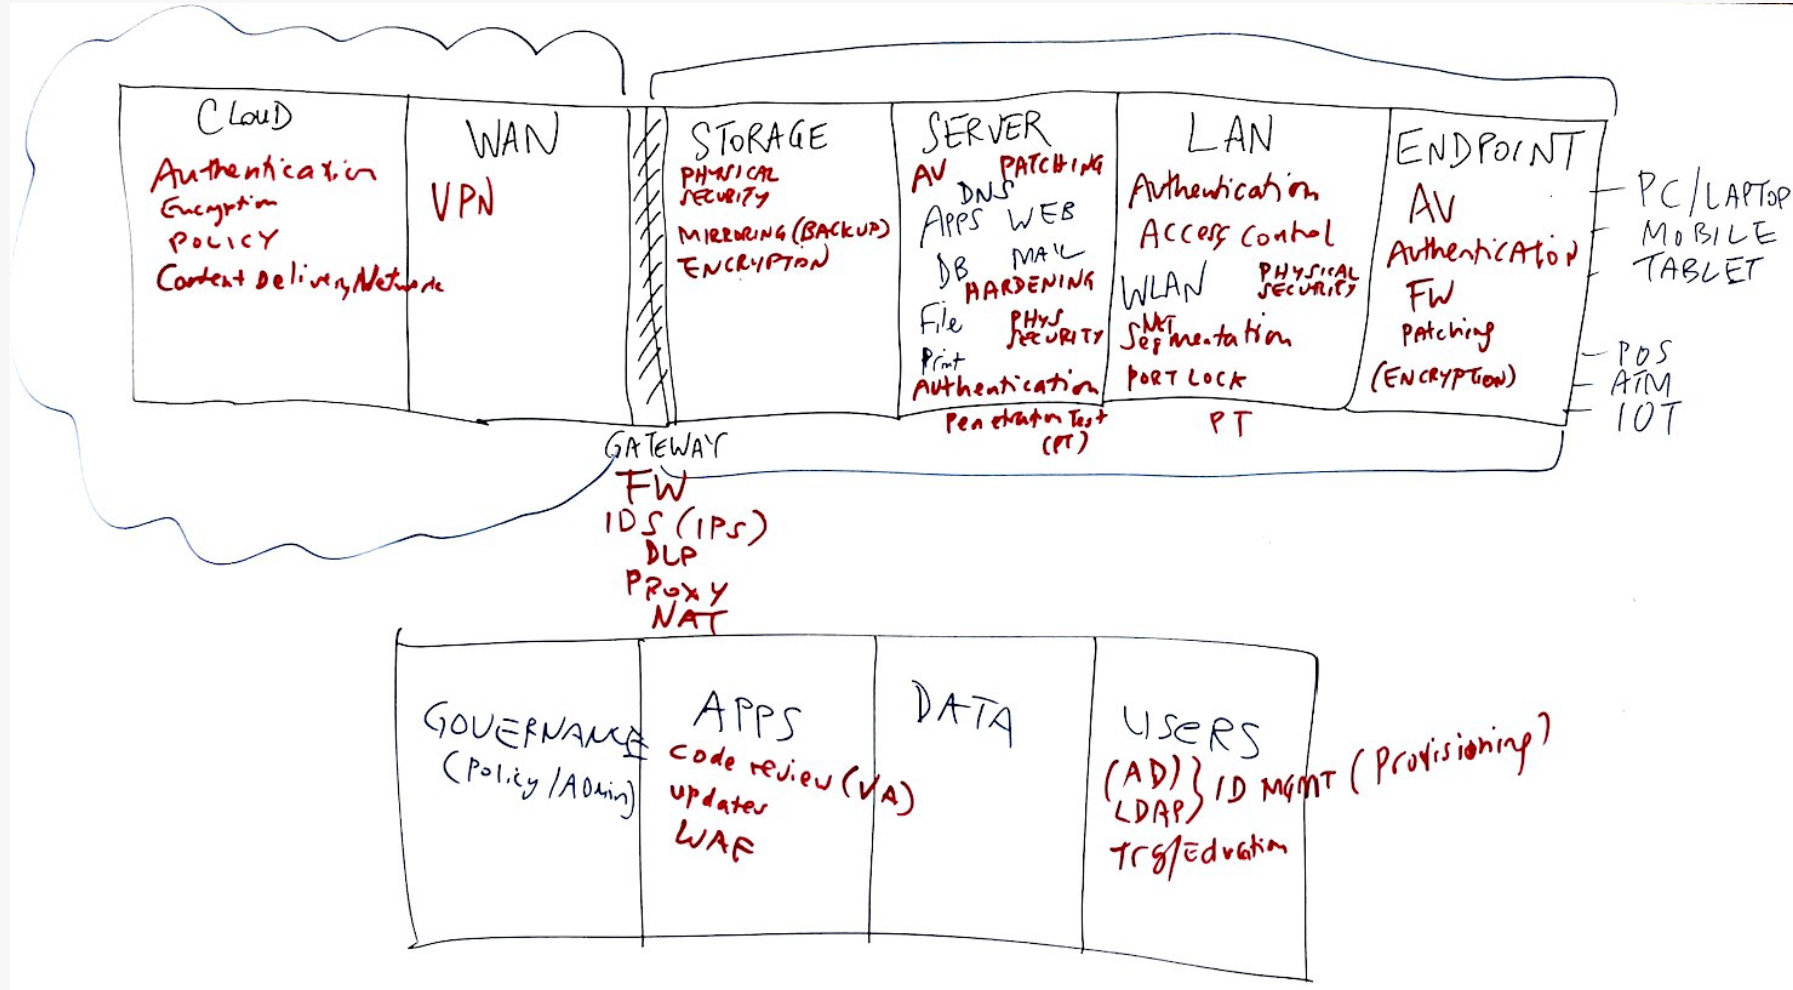 CLOUD
Authentication
Encryption
POLICY
Content Delivery Network
WAN
VPN
STORAGE
PHYSICAL
SECURITY
MIRRORING (BACKUP)
ENCRYPTION
SERVER
AV PATCHING
DNS
APPS WEB
DB MAIL
HARDENING
File PHYS
SECURITY
Print
Authentication
Penetration Test
(PT)
LAN
Authentication
Access Control
WLAN PHYSICAL
SECURITY
NET
Segmentation
PORT LOCK
PT
ENDPOINT
AV
Authentication
FW
Patching
(ENCRYPTION)
PC/LAPTOP
MOBILE
TABLET
POS
ATM
IOT
GATEWAY
FW
IDS (IPS)
DLP
PROXY
NAT
GOVERNANCE
(Policy/Admin)
APPS
Code review (VA)
updates
WAF
DATA
USERS
(AD) } ID MGMT (Provisioning)
LDAP
Trg/Education